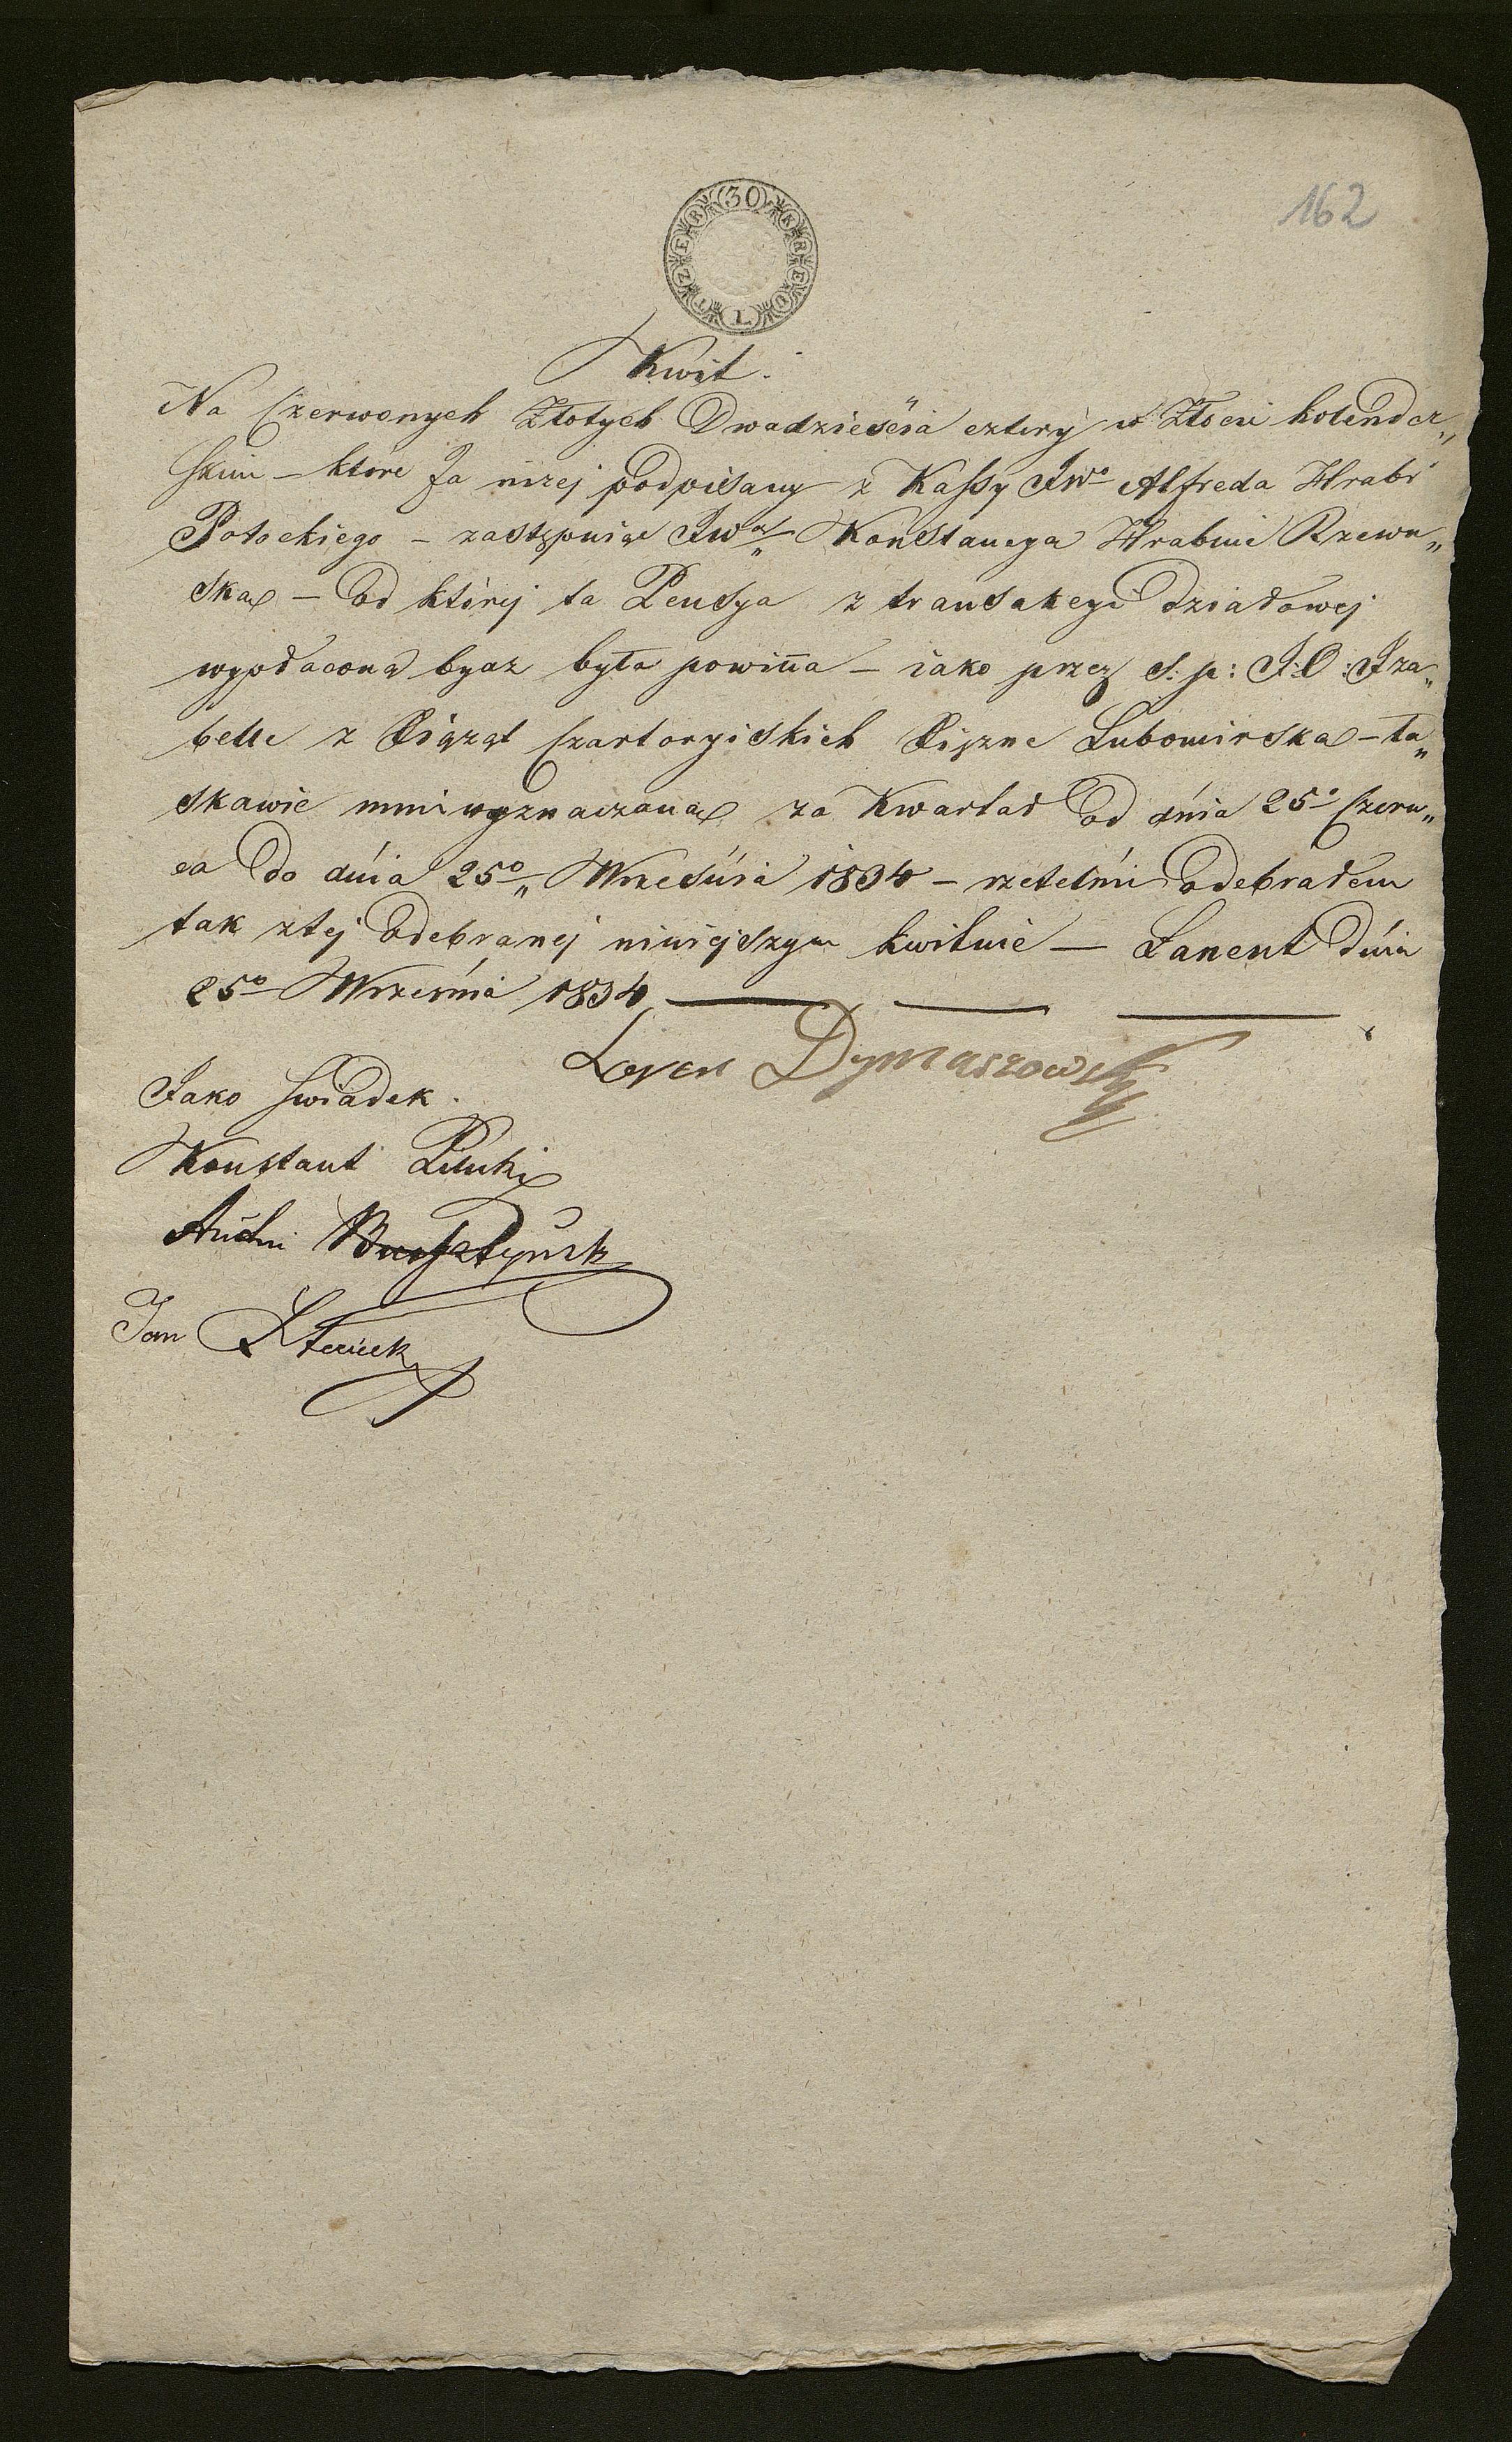 162
30 KREUTZER
Kwit.
Na Czerwonych Złotych Dwadzieścia cztery w Złocie holender„
skim – które Ja niżej podpisany z Kassy JWo Alfreda Hrabi
Potockiego – zastępuiąc JWą Konstancya Hrabinię Rzewu„
ską – od której ta Pensya z transakcyi działowej
wypłacona być była powinna – iako przez ś: p: J:O: Iza„
bellę z Xiążąt Czartoryiskich Xiężnę Lubomirską – ła„
skawie mnie wyznaczona za Kwartał od dnia 25o Czerw„
ca do dnia 25o Września 1834 – rzetelnie odebrałem
tak z tej odebranej niniejszym kwituię — Łancut dnia
25o Września 1834
Dymaszowski
Jako swiadek.
Konstant
Jan